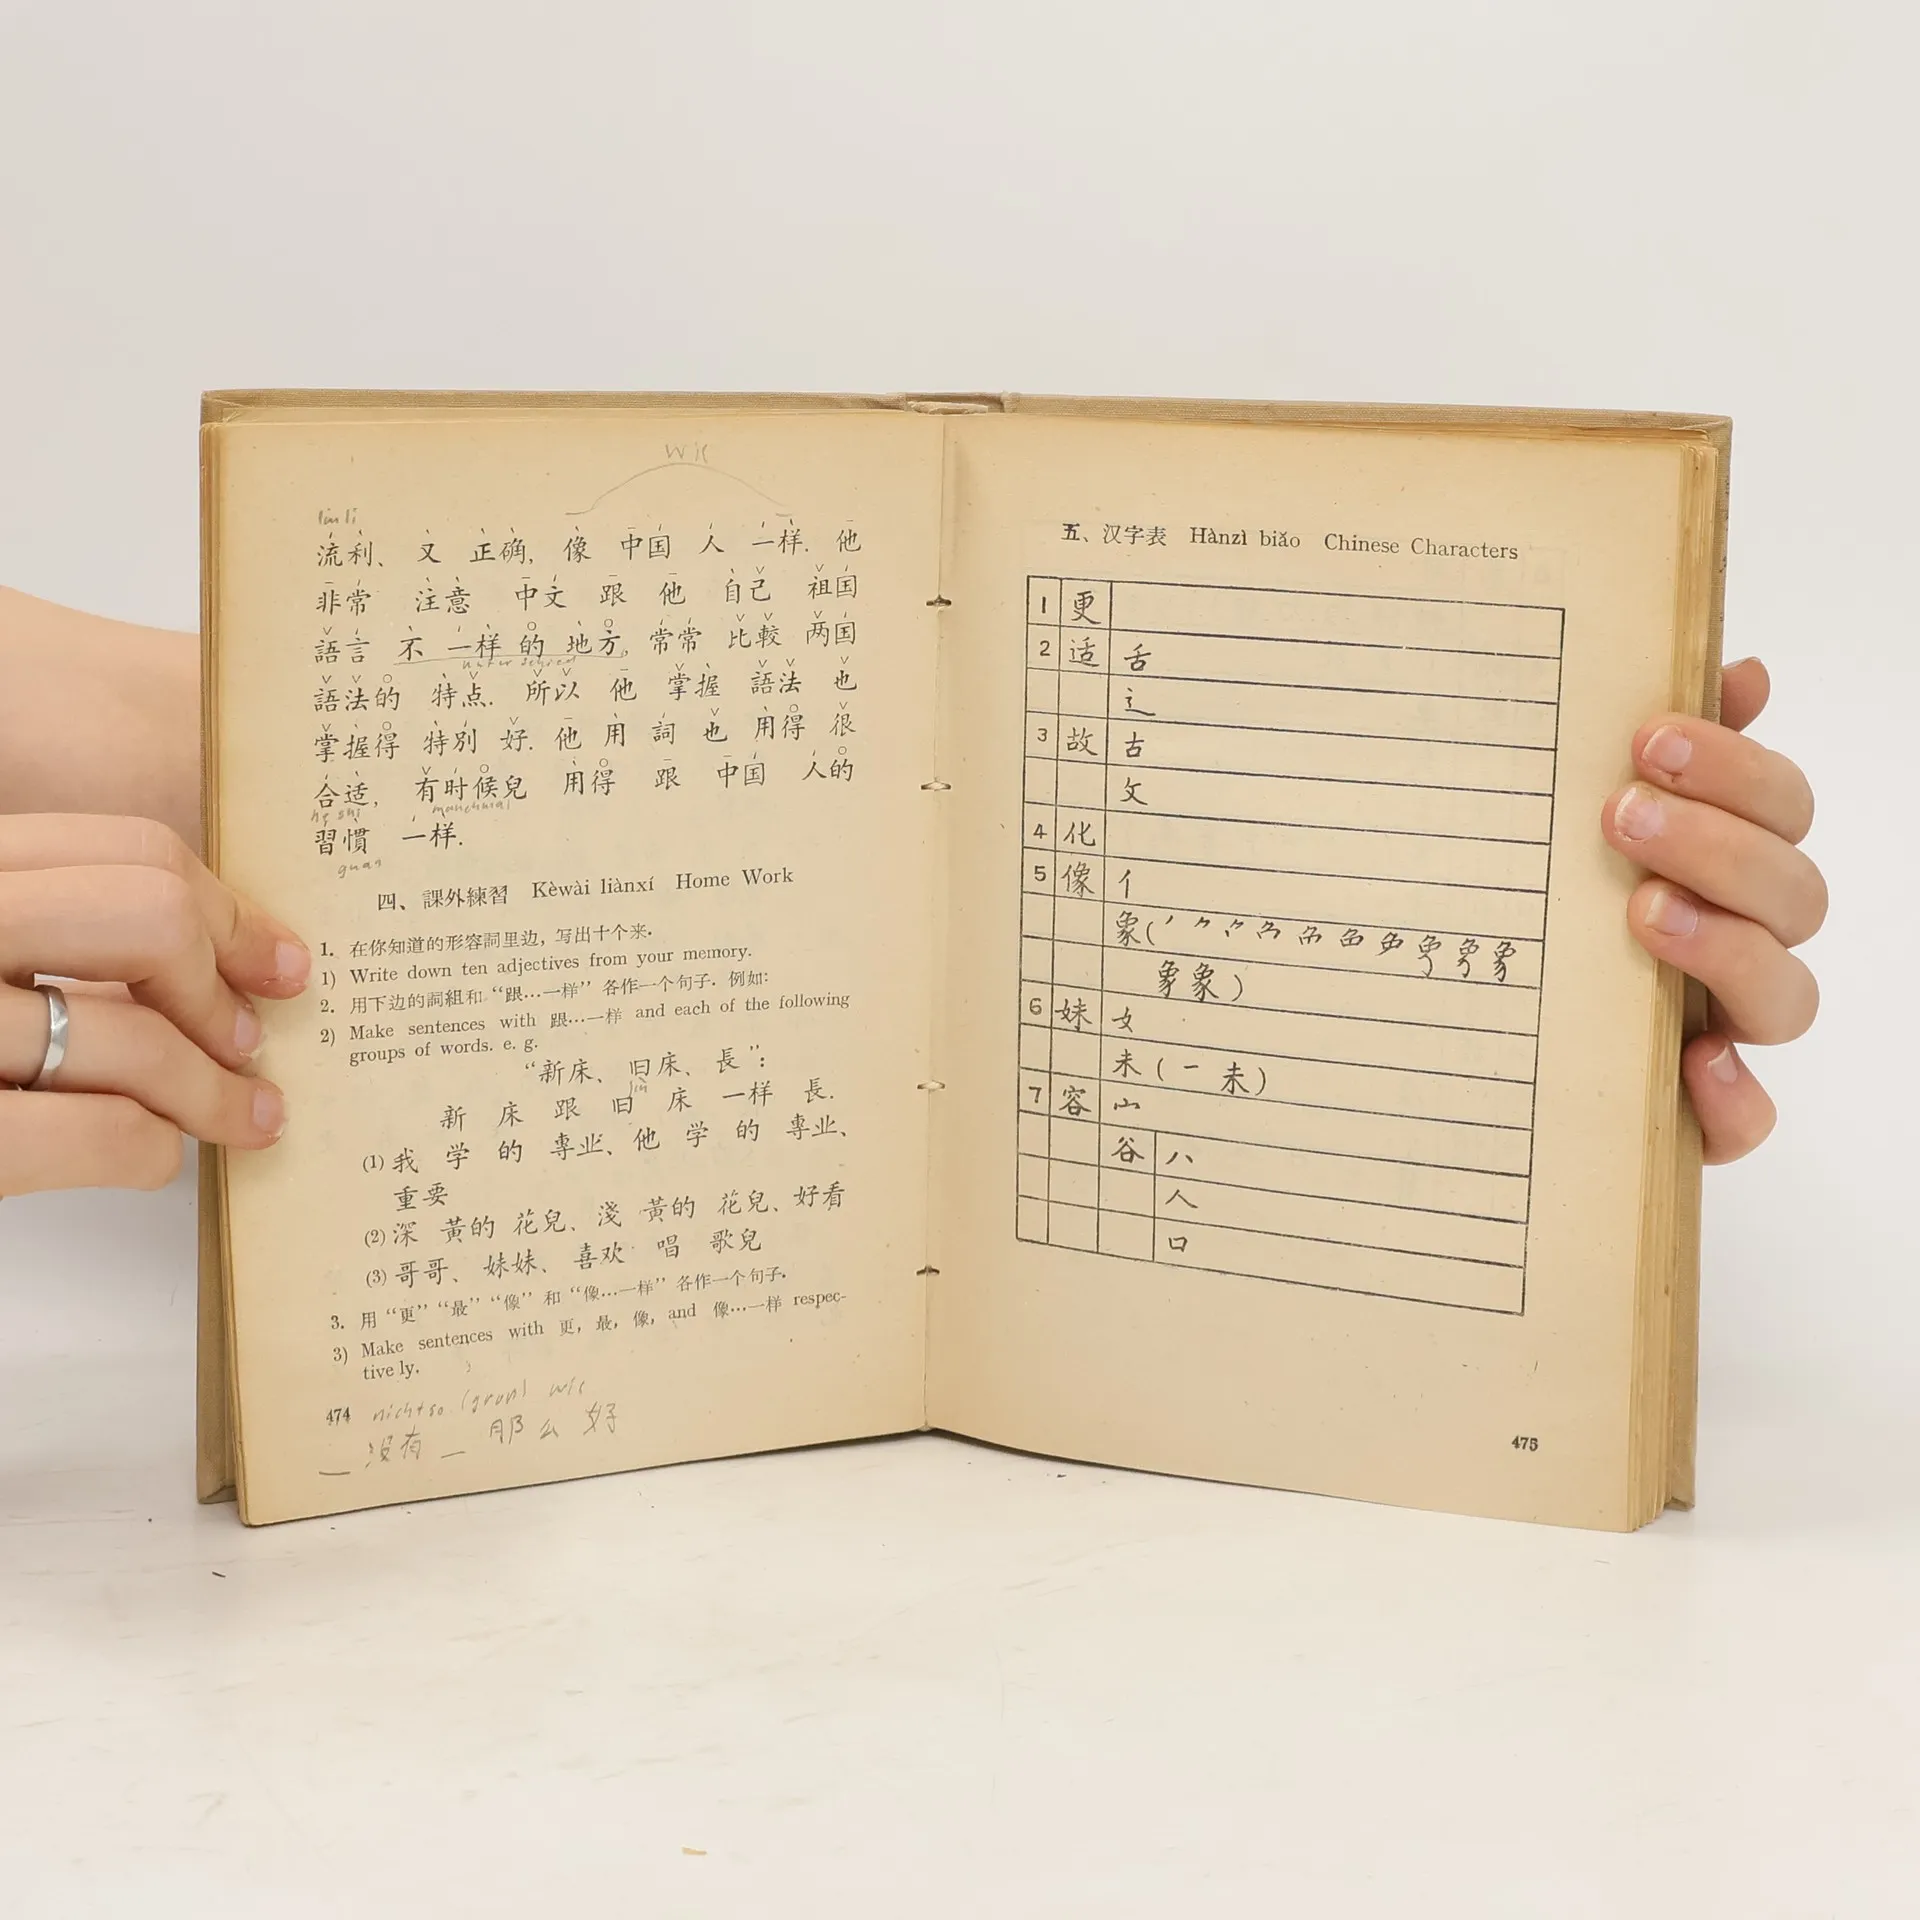 wie
liu li
流利、 又 正确, 像 中国 人 一样. 他
非常 注意 中文 跟 他 自己 祖国
語言 不 一样 的 地方, 常常 比較 两国
unterschied
語法的 特点. 所以 他 掌握 語法 也
掌握得 特別 好. 他 用 詞 也 用得 很
合适, 有时候兒 用得 跟 中国 人的
hé shì manchmal
習慣 一样.
guan
四、課外練習 Kèwài liànxí Home Work
1. 在你知道的形容詞里边, 写出十个来.
1) Write down ten adjectives from your memory.
2. 用下边的詞組和 “跟…一样” 各作一个句子. 例如:
2) Make sentences with 跟…一样 and each of the following
groups of words. e. g.
“新床、旧床、長”:
新 床 跟 旧 床 一样 長.
(1) 我 学 的 專业、他 学 的 專业、
重要
(2) 深 黃的 花兒、淺 黃的 花兒、好看
(3) 哥哥、妹妹、喜欢 唱 歌兒
3. 用 “更” “最” “像” 和 “像…一样” 各作一个句子.
3) Make sentences with 更, 最, 像, and 像…一样 respec-
tive ly.
474 nicht so wie
— 沒有 — 那么 好
五、汉字表 Hànzì biǎo Chinese Characters
1 更
2 适 舌
辶
3 故 古
攵
4 化
5 像 亻
象(
象象)
6 妹 女
未(一 未)
7 容 宀
谷 八
人
口
475